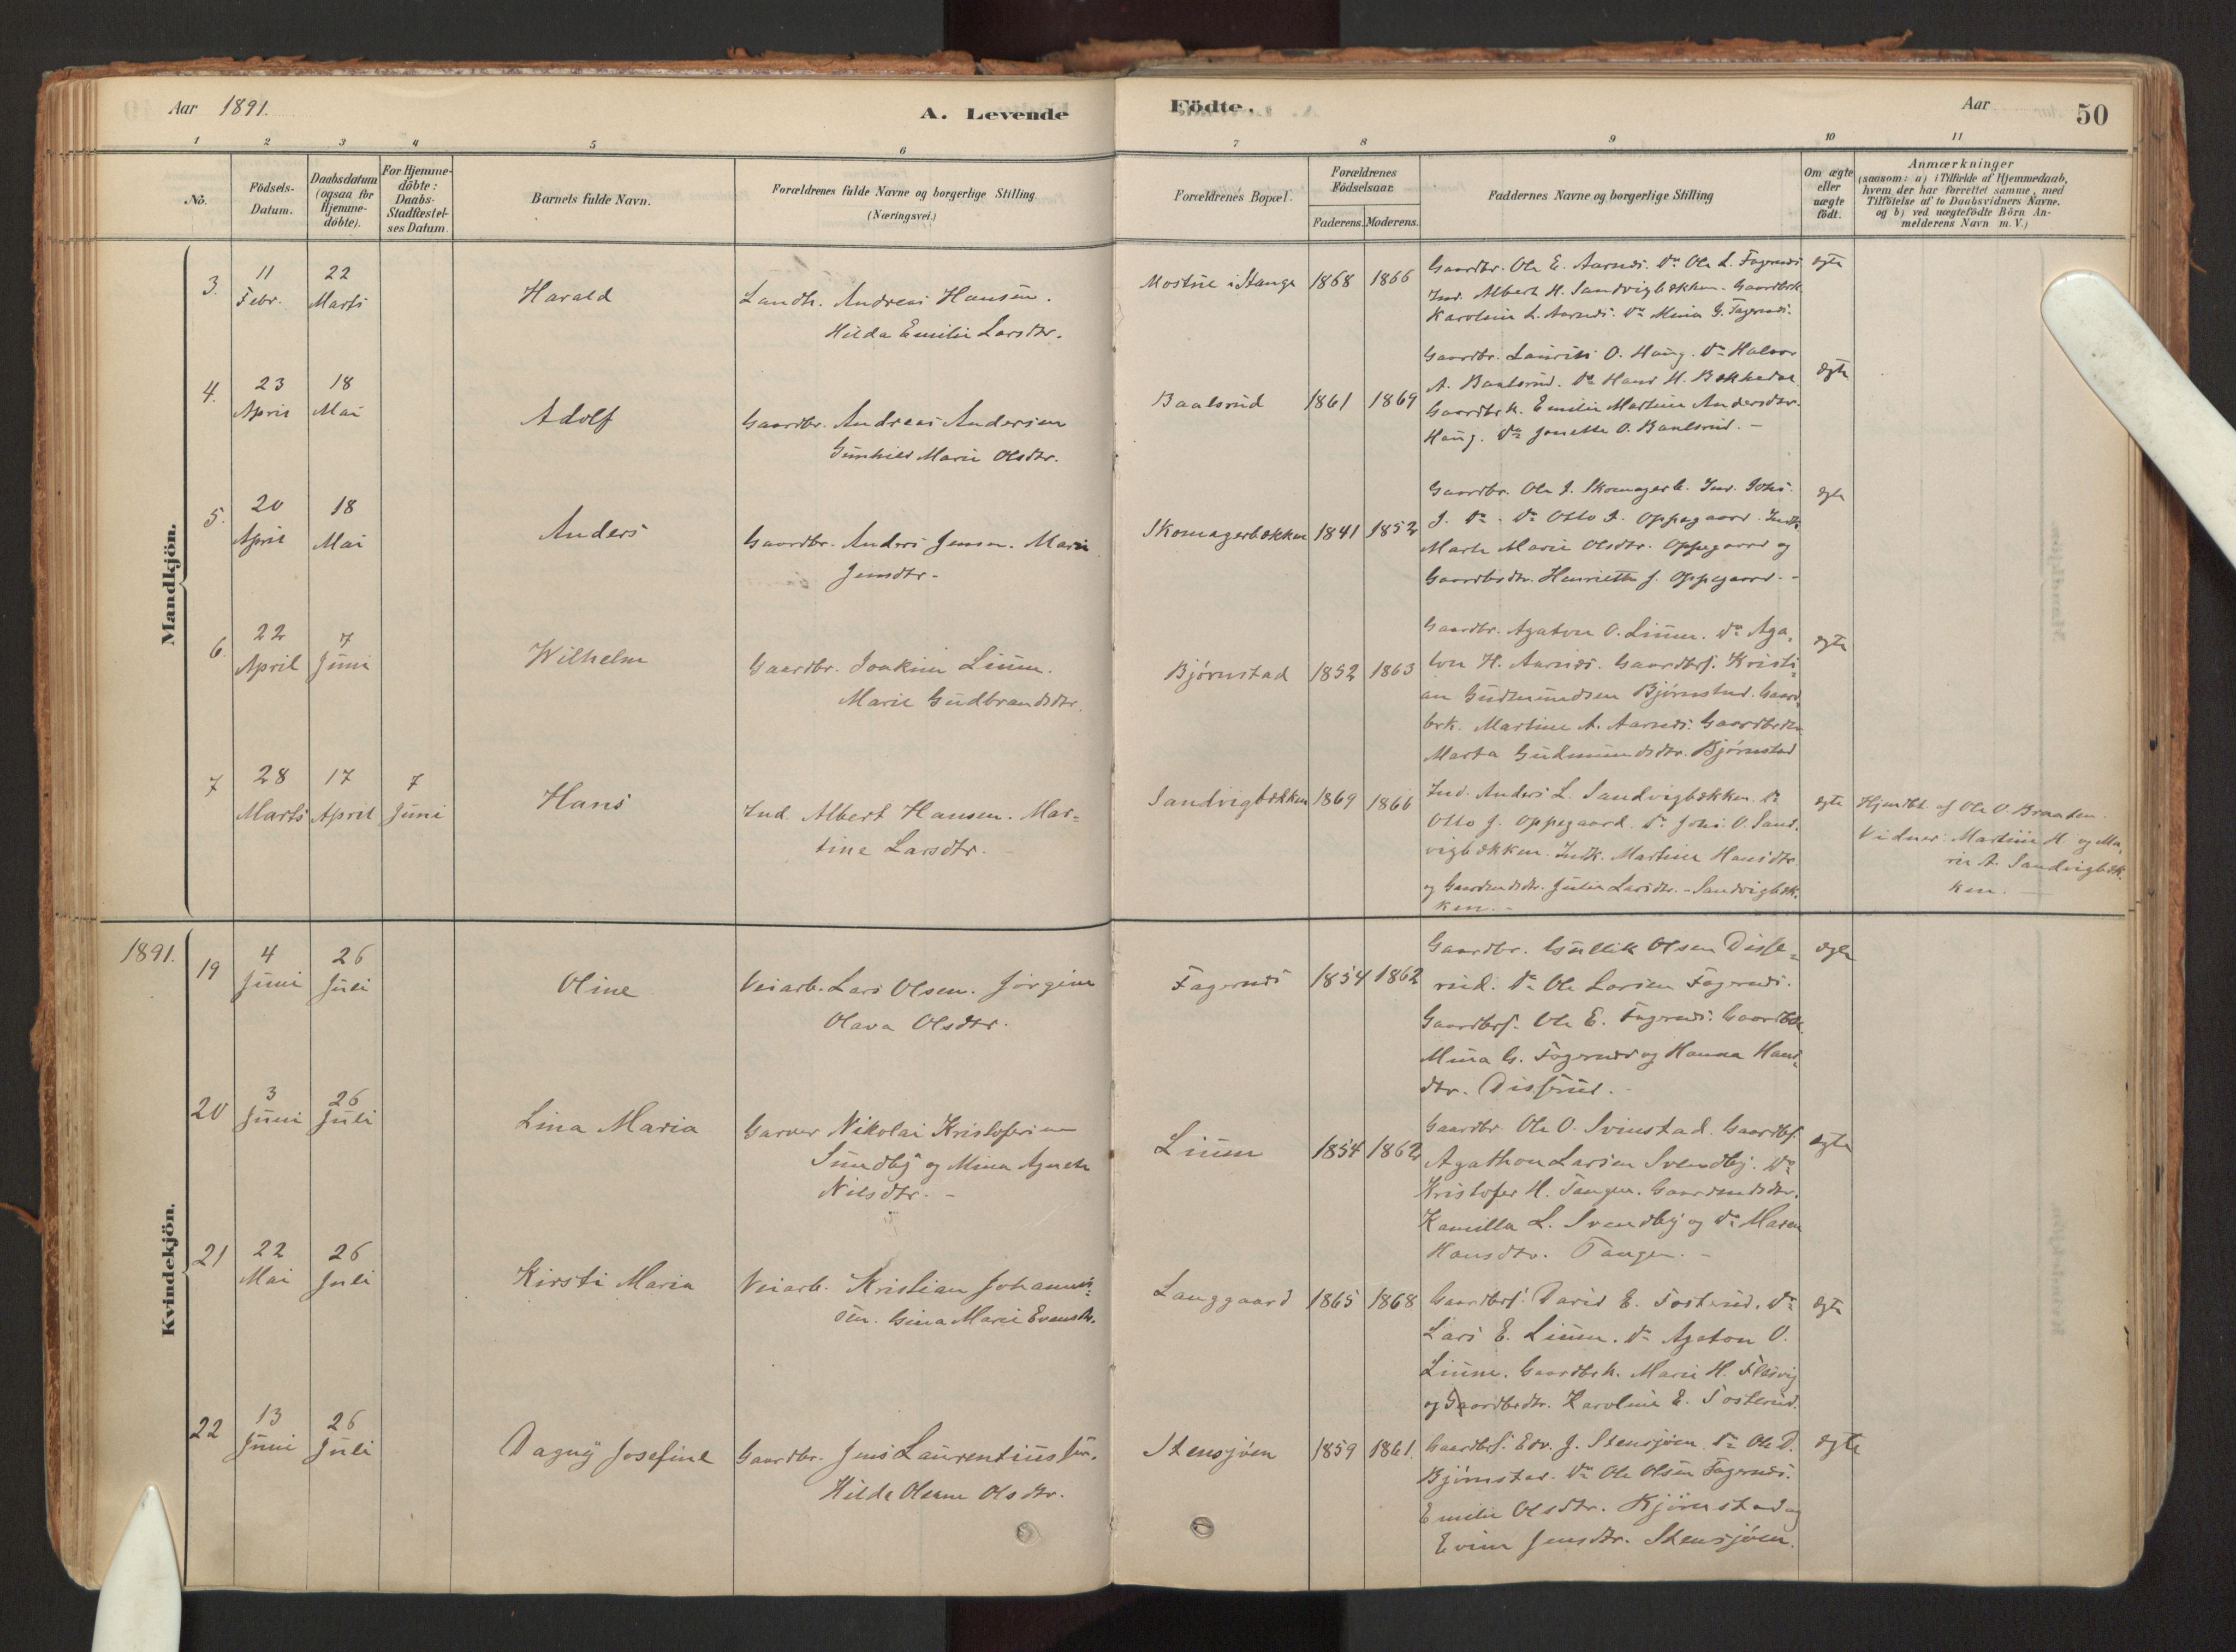 Aar 1891.
A. Levende
Födte.
Aar
50
1 2 3 4 5 6 7 8 9 10 11
No.
Födsels-
Datum.
Daabsdatum
(ogsaa for
Hjemme-
döbte).
For Hjemme-
döbte:
Daabs-
Stadfæstel-
ses Datum.
Barnets fulde Navn.
Forældrenes fulde Navne og borgerlige Stilling
(Næringsvei.)
Forældrenes Bopæl.
Forældrenes
Födselsaar.
Faderens. Moderens.
Faddernes Navne og borgerlige Stilling
Om ægte
eller
uægte
födt.
Anmærkninger
(saasom: a) i Tilfælde af Hjemmedaab,
hvem der har forrettet samme, med
Tilföielse af to Daabsvidners Navne,
og b) ved uægtefödte Börn An-
melderens Navn m.V.)
Mandkjön.
3. 11 Febr. 22 Marts
Harald
Landh. Andreas Hansen.
Hilda Emilie Larsdtr.
i Stange 1868 1866
Gaardbr. Ole E. Aarnæs. Do Ole L. Fagernæs
Ind. Albert H. Sandvigbækken. Gaardbrk.
Karoline L. Aarnæs. Do Mina G. Fagernæs.
ægte
4. 23 April 18 Mai
Adolf
Gaardbr. Andreas Andersen
Gunhild Marie Olsdtr.
Baalsrud 1861 1869
Gaardbr. Laurits O. Haug. Do Halvor
A. Baalsrud. Do Hans H. Bækkedal
Gaardbrk. Emilie Martine Andersdtr.
Haug. Do Jonette O. Baalsrud. -
ægte
5. 20 April 18 Mai
Anders
Gaardbr. Anders Jensen. Marie
Jensdtr. -
Skomagerbækken 1841 1852
Gaardbr. Ole J. Skomagerb. Ind. Johs.
J. Do. Do Otto J. Oppegaard. Indk.
Marte Marie Olsdtr. Oppegaard og
Gaardbrdtr. Henriette J. Oppegaard. -
ægte
6. 22 April 7 Juni
Wilhelm
Gaardbr. Joakim Lium.
Marie Gudbrandsdtr.
Bjørnstad 1852 1863
Gaardbr. Agaton O. Lium. Do Aga-
ton H. Aarnæs. Gaardbrs. Kristi-
an Gudmundsen Bjørnstad. Gaard-
brk. Martine A. Aarnæs. Gaardbrdtr.
Marta Gudmundsdtr. Bjørnstad
ægte
7 28 Marts 17 April 7 Juni
Hans
Ind. Albert Hansen. Mar-
tine Larsdtr. -
Sandvigbækken 1869 1866
Ind. Anders L. Sandvigbækken. Do
Otto J. Oppegaard. Do Johs. O. Sand-
vigbækken. Indk. Martine Hansdtr.
og Gaardmdsdtr. Julie Larsdtr. - Sandvigbæk-
ken. -
ægte
Hjemdbt. af Ole O. Braaten.
Vidner: Martine H. og Ma-
rie A. Sandvigbæk-
ken. -
Kvindekjön.
1891.
19 4 Juni 26 Juli
Oline
Veiarb. Lars Olsen. Jørgine
Olava Olsdtr.
Fagernæs 1854 1862
Gaardbr. Gullik Olsen Disse-
rud. Do Ole Larsen Fagernæs.
Gaardbrs. Ole E. Fagernæs. Gaardbrk.
Mina G. Fagernæs og Hanna Hans-
dtr. Disserud. -
ægte
20 3 Juni 26 Juli
Lina Maria
Garver Nikolai Kristofersen
Sundby og Mina Agnete
Nilsdtr. -
Lium 1854 1862
Gaardbr. Ole O. Svinstad. Gaardbs.
Agathon Larsen Svendby. Do
Kristofer H. Tangen. Gaardmdsdtr.
Kamilla L. Svendby og Do Maren
Hansdtr. Tangen. -
ægte
21 22 Mai 26 Juli
Kirsti Maria
Veiarb. Kristian Johannes-
sen. Gina Marie Evensdtr.
Langgaard 1865 1868
Gaardbrs. David E. Tosterud. Do
Lars E. Lium. Do Agaton O.
Lium. Gaardbrk. Marie H. Flesvig
og Gaardbrdtr. Karoline E. Tosterud.
ægte
22 13 Juni 26 Juli
Dagny Josefine
Gaardbr. Jens Laurentius
Hilda Olsdtr.
Stensjøen 1859 1861.
Gaardbrs. Edv. J. Stensjøen. Do Ole D.
Bjørnstad. Do Ole Olsen Fagernæs.
Emilie Olsdtr. Bjørnstad og
Evine Jensdtr. Stensjøen.
ægte